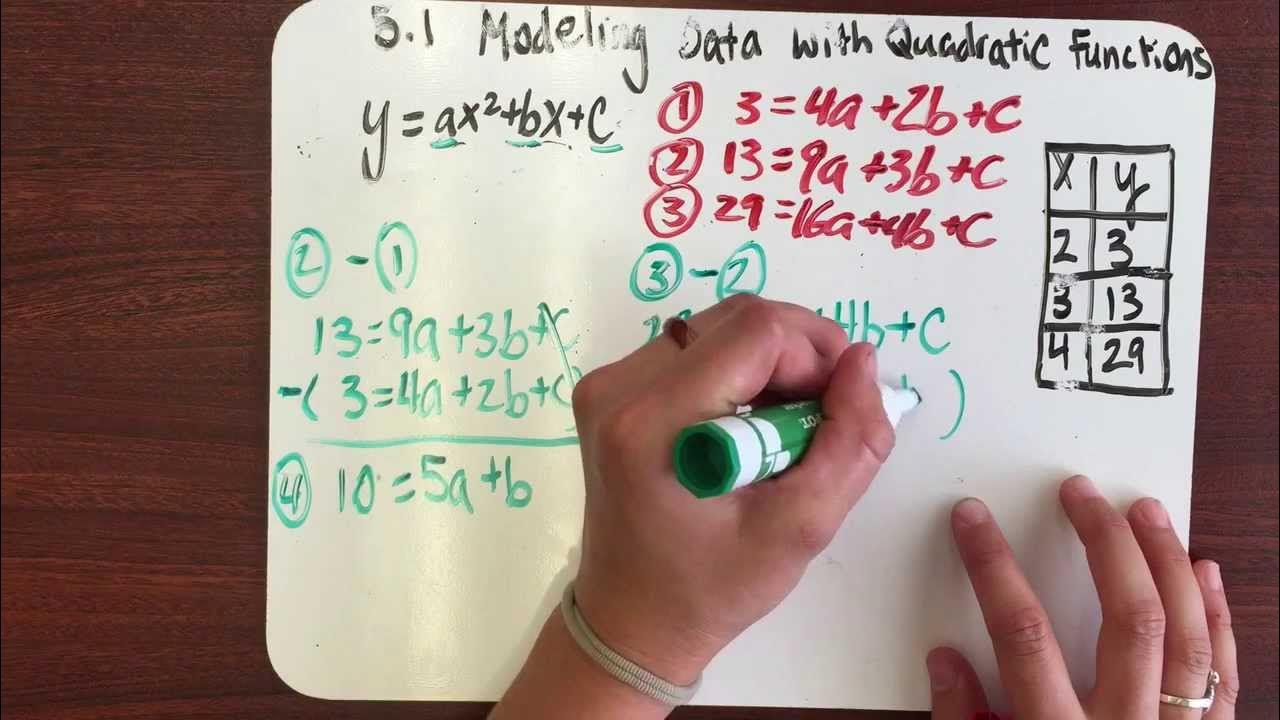 5.1 Modeling Data with Quadratic Functions
y = ax²+bx+c
① 3=4a+2b+c
② 13=9a+3b+c
③ 29=16a+4b+c
x y
2 3
3 13
4 29
② - ①
13=9a+3b+c
-( 3=4a+2b+c)
④ 10=5a+b
③ - ②
4b+c
)